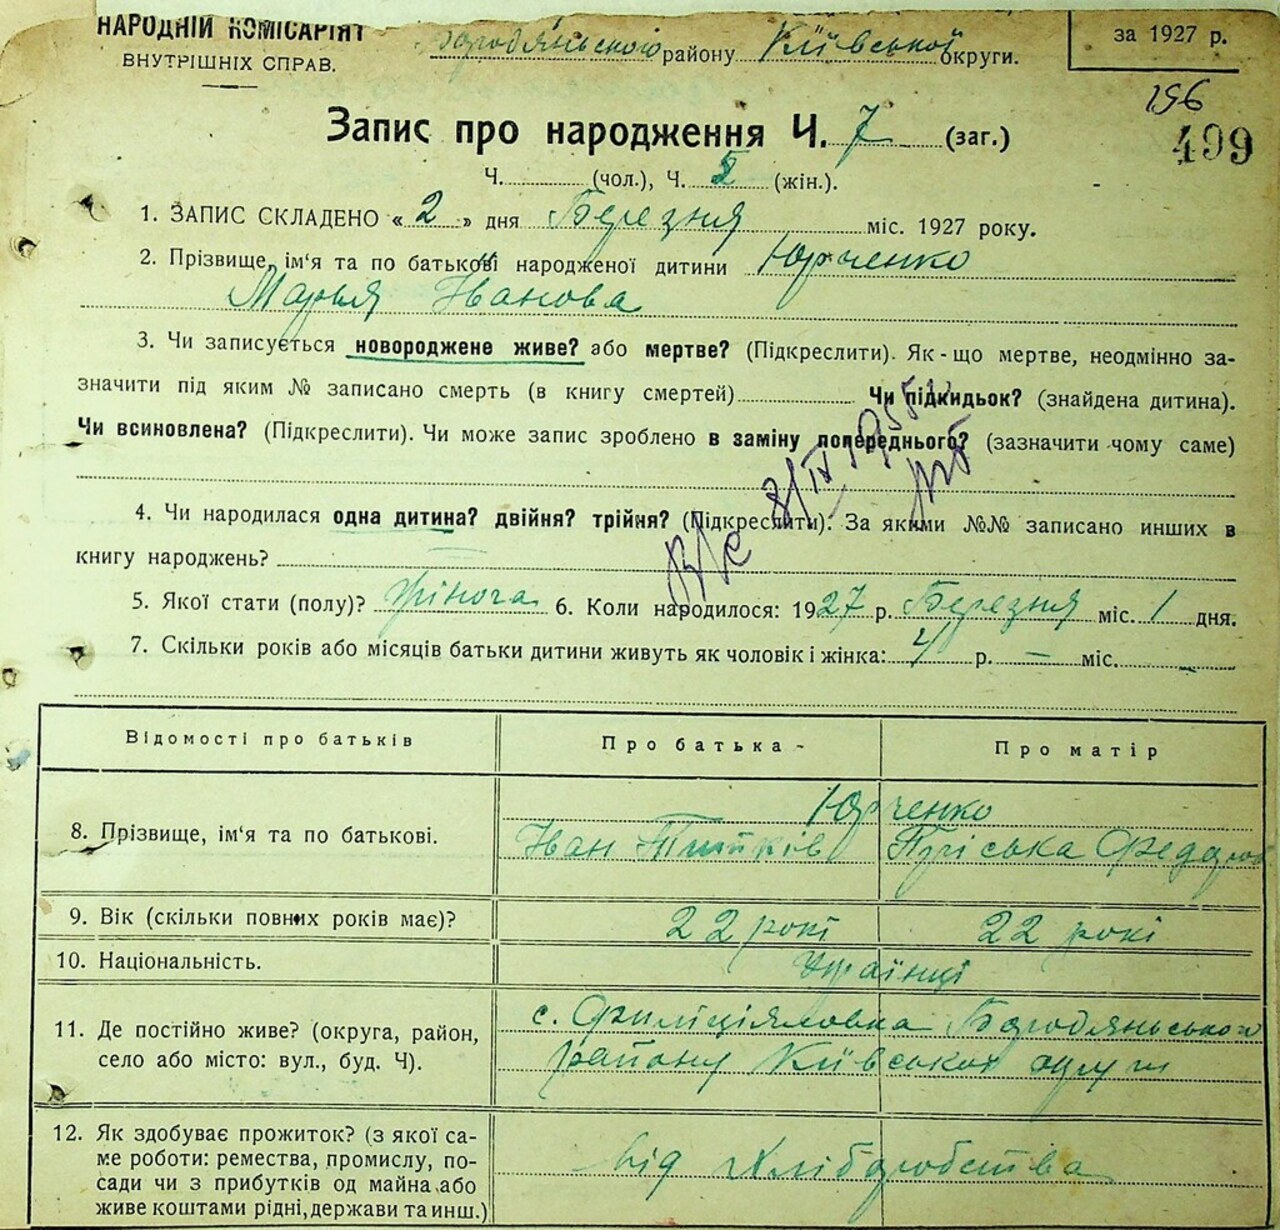 НАРОДНІЙ КОМІСАРІЯТ
ВНУТРІШНІХ СПРАВ.
Бородяньського району Київської округи.
за 1927 р.
196
499
Запис про народження Ч. 7 (заг.)
Ч. (чол.), Ч. 5 (жін.).
1. ЗАПИС СКЛАДЕНО « 2 » дня Березня міс. 1927 року.
2. Прізвище, ім'я та по батькові народженої дитини Юрченко
Марья Іванова
3. Чи записується новороджене живе? або мертве? (Підкреслити). Як-що мертве, неодмінно за-
значити під яким № записано смерть (в книгу смертей) Чи підкидьок? (знайдена дитина).
Чи всиновлена? (Підкреслити). Чи може запис зроблено в заміну попереднього? (зазначити чому саме)
4. Чи народилася одна дитина? двійня? трійня? (Підкреслити). За якими №№ записано инших в
книгу народжень?
5. Якої стати (полу)? жіноча 6. Коли народилося: 1927 р. Березня міс. 1 дня.
7. Скільки років або місяців батьки дитини живуть як чоловік і жінка: 4 р. — міс.
Відомості про батьків
Про батька -
Про матір
8. Прізвище, ім'я та по батькові.
Юрченко
Іван
Пріська Федоров
9. Вік (скільки повних років має)?
22 рокі
22 рокі
10. Національність.
Українці
11. Де постійно живе? (округа, район,
село або місто: вул., буд. Ч).
с. Филіціяловка Бородяньського
району Київської округи
12. Як здобуває прожиток? (з якої са-
ме роботи: ремества, промислу, по-
сади чи з прибутків од майна або
живе коштами рідні, держави та инш.)
від Хліборобства